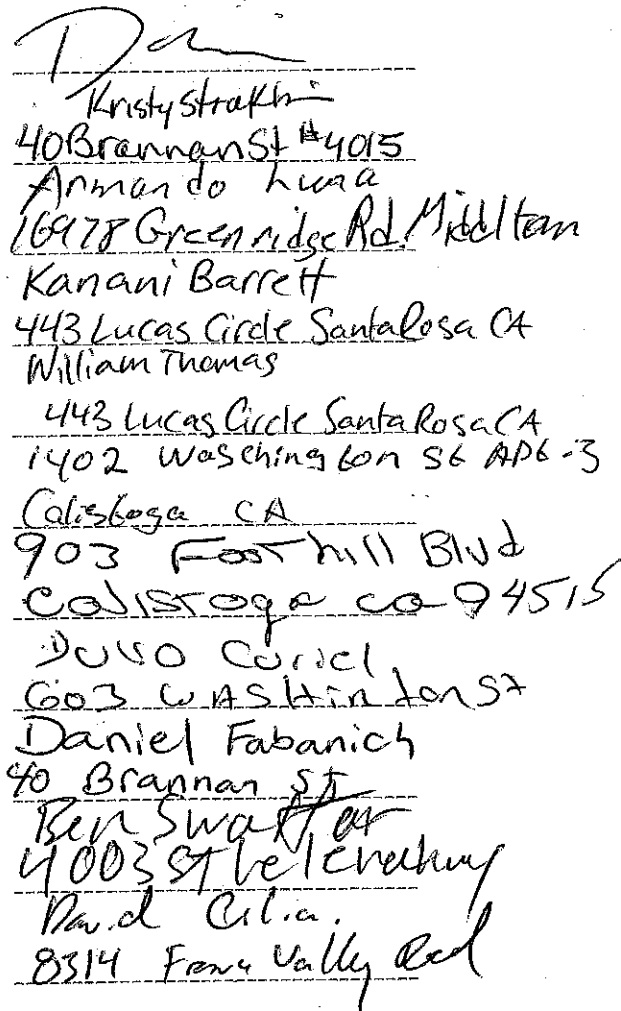 Kristy
40 Brannan St #4015
Armando Luna
16978 Greenridge Rd. Middltown
Kanani Barrett
443 Lucas Circle Santa Rosa CA
William Thomas
443 Lucas Circle Santa Rosa CA
1402 Waschington St APt-3
Calistoga CA
903 Foothill Blvd
Calistoga ca 94515
Curiel
603 WASHintonSt
Daniel Fabanich
40 Brannan St
Ben Swaffar
4003 St Helena hwy
David Cilia.
8314 Franz Valley Rd